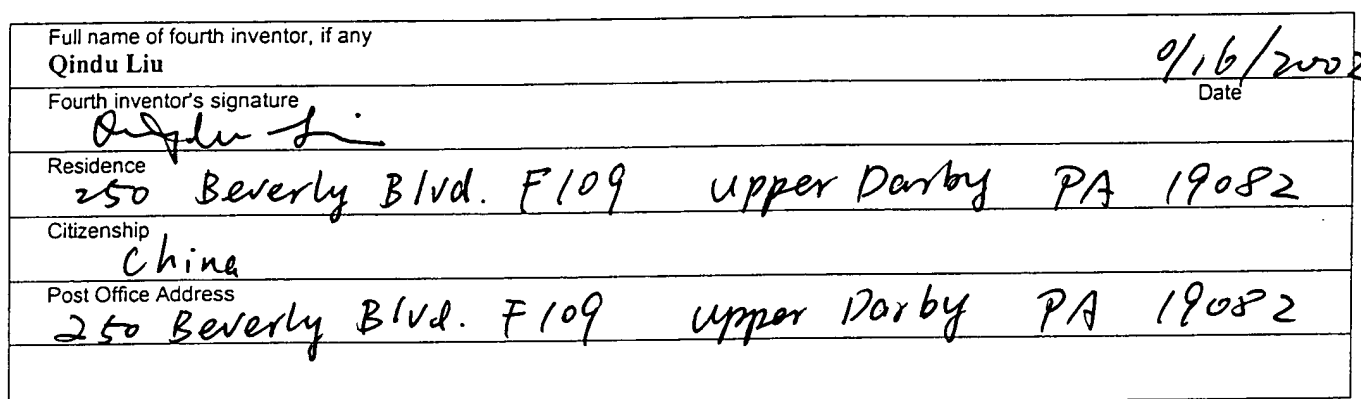 Full name of fourth inventor, if any
Qindu Liu
/16/2002
Date
Fourth inventor's signature
Residence
250 Beverly Blvd. F109 upper Darby PA 19082
Citizenship
China
Post Office Address
250 Beverly Blvd. F109 upper Darby PA 19082